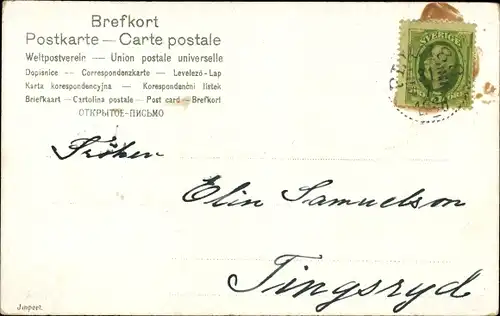 Brefkort
Postkarte — Carte postale
Weltpostverein — Union postale universelle
Dopisnice — Correspondenzkarte — Levelező-Lap
Karta korespondencyjna — Korespondenční lístek
Briefkaart — Cartolina postale — Post card — Brefkort
ОТКРЫТОЕ-ПИСЬМО
SVERIGE
Fröken
Elin Samuelson
Tingsryd
Jmport.